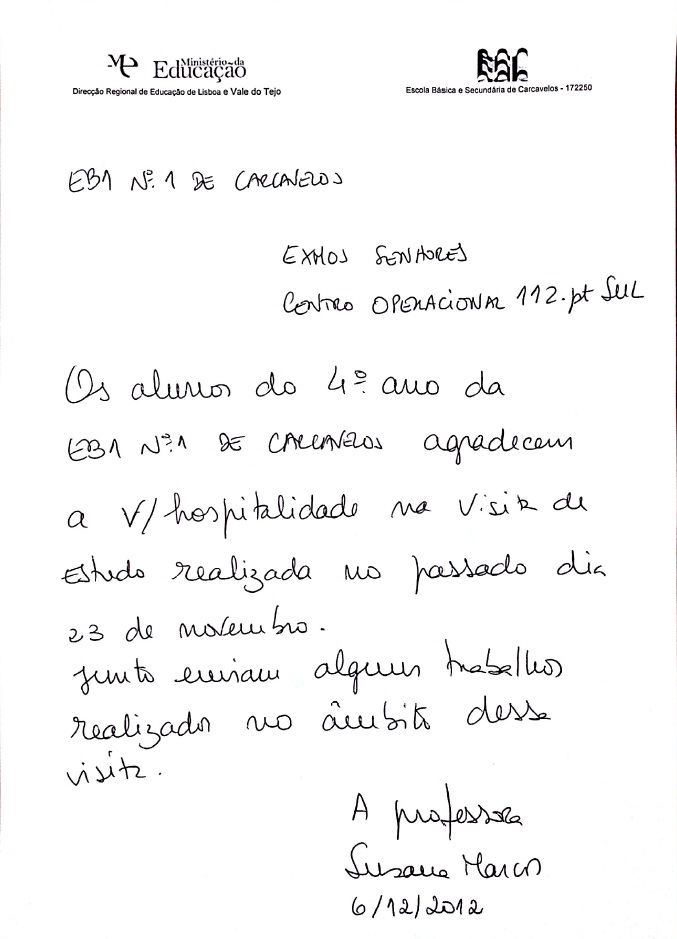 Ministério da
Educação
Direcção Regional de Educação de Lisboa e Vale do Tejo
Escola Básica e Secundária de Carcavelos - 172250
EB1 Nº. 1 DE CARCAVELOS
EXMOS SENHORES
CENTRO OPERACIONAL 112.pt SUL
Os alunos do 4º ano da
EB1 Nº.1 DE CARCAVELOS agradecem
a V/ hospitalidade na visita de
Estudo realizada no passado dia
23 de novembro.
Junto enviam alguns trabalhos
realizados no âmbito dessa
visita.
A professora
Susana Marcos
6/12/2012